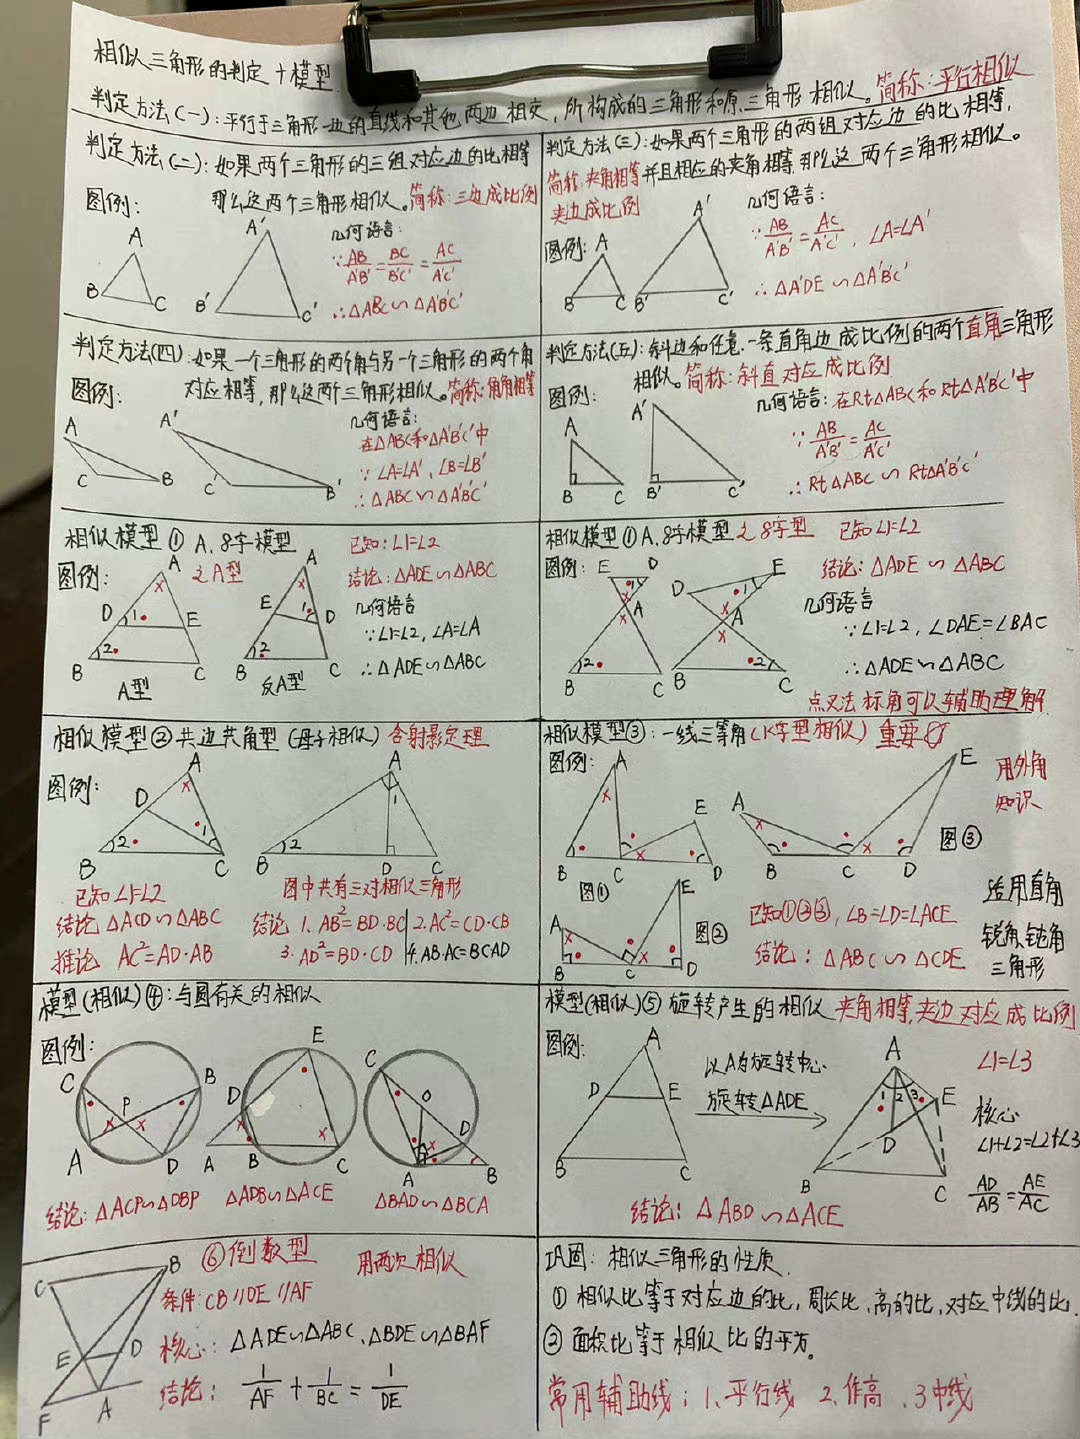 相似三角形的判定+模型
判定方法(一):平行于三角形一边的直线和其他两边相交,所构成的三角形和原三角形相似。简称:平行相似
判定方法(二):如果两个三角形的三组对应边的比相等
那么这两个三角形相似。简称:三边成比例
图例:
A
B
C
A'
B'
C'
几何语言:
∵AB/A'B'=BC/B'C'=AC/A'C'
∴△ABC∽△A'B'C'
判定方法(三):如果两个三角形的两组对应边的比相等,
并且相应的夹角相等,那么这两个三角形相似。
简称:夹角相等
夹边成比例
图例:
A
B
C
A'
B'
C'
几何语言:
∵AB/A'B'=AC/A'C',∠A=∠A'
∴△A'DE∽△A'B'C'
判定方法(四):如果一个三角形的两个角与另一个三角形的两个角
对应相等,那么这两个三角形相似。简称:角角相等
图例:
A
C
B
A'
C'
B'
几何语言:
在△ABC和△A'B'C'中
∵∠A=∠A',∠B=∠B'
∴△ABC∽△A'B'C'
判定方法(五):斜边和任意一条直角边成比例的两个直角三角形
相似。简称:斜直对应成比例
图例:
A
B
C
A'
B'
C'
几何语言:在Rt△ABC和Rt△A'B'C'中
∵AB/A'B'=AC/A'C'
∴Rt△ABC∽Rt△A'B'C'
相似模型①A、8字模型
图例:
A型
A
D
1
E
2
B
C
A型
A
E
1
D
2
B
C
反A型
已知:∠1=∠2
结论:△ADE∽△ABC
几何语言
∵∠1=∠2,∠A=∠A
∴△ADE∽△ABC
相似模型①A、8字模型 8字型
图例:
E
D
1
A
2
B
C
D
E
1
A
2
B
C
已知∠1=∠2
结论:△ADE∽△ABC
几何语言
∵∠1=∠2,∠DAE=∠BAC
∴△ADE∽△ABC
点叉法标角可以辅助理解
相似模型②共边共角型(母子相似)含射影定理
图例:
A
D
1
2
B
C
已知∠1=∠2
结论△ACD∽△ABC
推论 AC²=AD·AB
A
1
2
B
D
C
图中共有三对相似三角形
结论 1.AB²=BD·BC 2.AC²=CD·CB
3.AD²=BD·CD 4.AB·AC=BCAD
相似模型③:一线三等角(K字型相似)重要
图例:
A
E
B
C
D
图①
A
E
B
C
D
图②
A
E
B
C
D
图③
用外角
知识
已知①②③,∠B=∠D=∠ACE
结论:△ABC∽△CDE
适用直角
锐角、钝角
三角形
模型(相似)④:与圆有关的相似
图例:
C
B
P
A
D
E
D
A
B
C
C
O
D
A
B
结论:△ACP∽△DBP
△ADB∽△ACE
△BAD∽△BCA
模型(相似)⑤旋转产生的相似 夹角相等,夹边对应成比例
图例:
A
D
E
B
C
以A为旋转中心
旋转△ADE
A
1
2
3
E
D
B
C
∠1=∠3
核心
∠1+∠2=∠2+∠3
AD/AB=AE/AC
结论:△ABD∽△ACE
⑥倒数型
用两次相似
C
B
E
D
F
A
条件:CB//DE//AF
核心:△ADE∽△ABC、△BDE∽△BAF
结论:1/AF+1/BC=1/DE
巩固:相似三角形的性质.
①相似比等于对应边的比,周长比,高的比,对应中线的比.
②面积比等于相似比的平方。
常用辅助线:1、平行线 2、作高、3中线